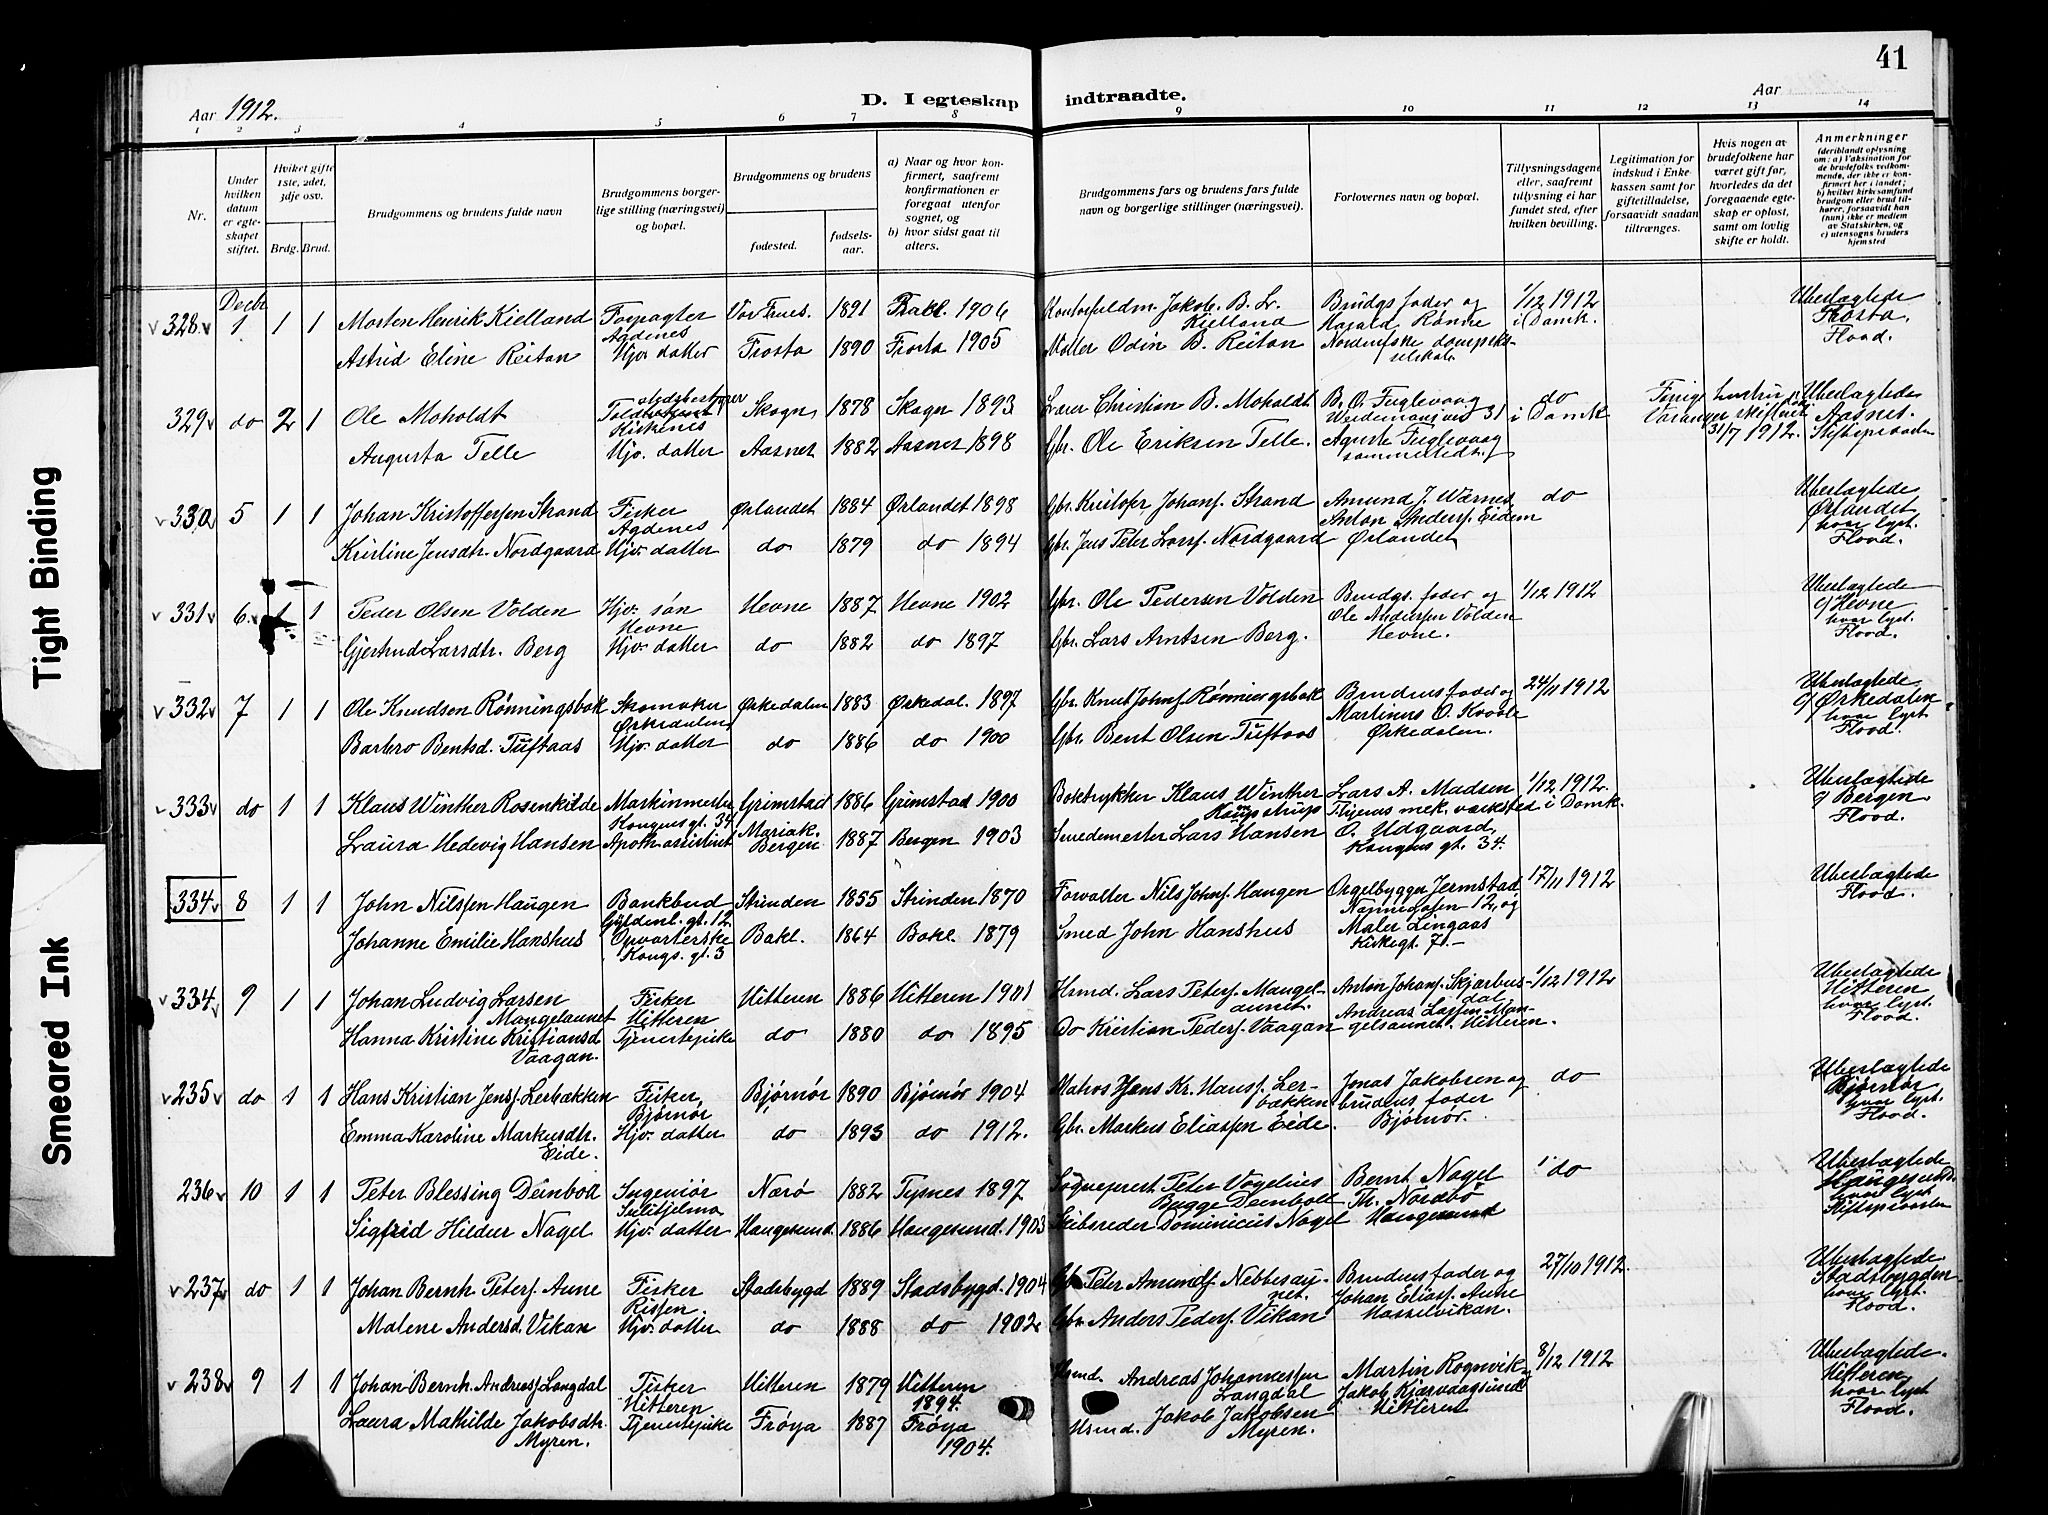 Tight Binding
Smeared Ink
41
Aar 1912.
D. I egteskap indtraadte.
Aar
1 2 3 4 5 6 7 8 9 10 11 12 13 14
Nr.
Under hvilken datum er egteskapet stiftet.
Hvilket gifte 1ste, 2det, 3dje osv.
Brdg. Brud.
Brudgommens og brudens fulde navn
Brudgommens borgerlige stilling (næringsvei) og bopæl.
Brudgommens og brudens
fødested. fødselsaar.
a) Naar og hvor konfirmert, saafremt konfirmationen er foregaat utenfor sognet, og
b) hvor sidst gaat til alters.
Brudgommens fars og brudens fars fulde navn og borgerlige stillinger (næringsvei).
Forlovernes navn og bopæl.
Tillysningsdagene eller, saafremt tillysning ei har fundet sted, efter hvilken bevilling.
Legitimation for indskud i Enkekassen samt for giftetilladelse, forsaavidt saadan tiltrænges.
Hvis nogen av brudefolkene har været gift før, hvorledes da det foregaaende egteskap er opløst, samt om lovlig skifte er holdt.
Anmerkninger
(deriblandt oplysning om: a) Vaksination for de brudefolks vedkommende, der ikke er konfirmert her i landet;
b) hvilket kirkesamfund brudgom eller brud tilhører, forsaavidt han (hun) ikke er medlem av Statskirken, og
c) utensogns bruders hjemsted
Decbr
328. 1 1 1 Morten Henrik Kielland Forpagter Agdenes Vor Frues. 1891 Bakl. 1906 Jakob. B. L. Kielland Brudgs fader og Harald Rønne 1/12 1912 i Domk. Ubeslagtede Frosta. Flood.
Astrid Eline Reitan Hjv. datter Frosta 1890 Frosta 1905 Møller Odin B. Reitan Nordenfjske dampskselskab
329 do 2 1 Ole Moholdt Kirkenes Skogn 1878 Skogn 1893 Lærer Christian B. Moholdt B. O. Fuglevaag 31 do i Domk 31/7 1912. Ubeslagtede Aasnes. Stiftsprovsten
Augusta Telle Hjv. datter Aasnes 1882 Aasnes 1898 Gbr. Ole Eriksen Telle. Aguste Fuglevaag sammesteds.
330 5 1 1 Johan Kristoffersen Strand Fisker Agdenes Ørlandet 1884 Ørlandet 1898 Gbr. Kristofr Johans. Strand Amund J. Wærnes Anton Anders. Eidem do Ubeslagtede Ørlandet hvor lyst. Flood.
Kristine Jensdtr. Nordgaard Hjv. datter do 1879 do 1894 Gbr. Jens Peter Larss. Nordgaard Ørlandet
331 6. 1 1 Peder Olsen Volden Hjv. søn Hevne Hevne 1887 Hevne 1902 Gbr. Ole Pedersen Volden Brudgs. fader og Ole Andersen Volden 1/12 1912 Ubeslagtede af Hevne hvor lyst. Flood.
Gjertrud Larsdtr. Berg Hjv. datter do 1882 do 1897 Gbr. Lars Arntsen Berg. Hevne.
332 7 1 1 Ole Knudsen Rønningsbak Skomaker Orkedalen Orkedalen 1883 Orkedal. 1897 Gbr. Knut Johns. Rønningsbak Brudens fader og Martinus O. Kvaale 24/11 1912 Ubeslagtede af Orkedalen hvor lyst. Flood.
Barbro Bentsd. Tuftaas Hjv. datter do 1886 do 1900 Gbr. Bent Olsen Tuftaas Orkedalen.
333 do 1 1 Klaus Winther Rosenkilde Maskinmester Kongensgt. 34 Grimstad 1886 Grimstad 1900 Boktrykker Klaus Winther Lars A. Madsen Thjems mek. værksted 1/12 1912. i Domk. Ubeslagtede af Bergen. Flood.
Laura Hedevig Hansen Apoth. assistent Mariak. Bergen 1887 Bergen 1903 Smedemester Lars Hansen O. Udgaard, Kongens gt. 34.
334 8 1 1 John Nilssen Haugen Bankbud Gyldenl. gt. 12 Strinden 1855 Strinden 1870 Forvalter Nils Johns. Haugen Orgelbygger Jermstad Nonnegaten 12, og 17/11 1912 Ubeslagtede Flood.
Johanne Emilie Hanshus Opvarterske Kongs. gt. 3 Bakl. 1864 Bakl. 1879 Smed John Hanshus Maler Lingaas Kirkegt. 71.
334 9 1 1 Johan Ludvig Larsen Mangelaunet Fisker Hitteren Hitteren 1886 Hitteren 1901 Hsmd. Lars Peters. Mangelaunet. Anton Johans. Skjærbusdal 1/12 1912 Ubeslagtede Hitteren hvor lyst. Flood.
Hanna Kristine Kristiansd Vaagan. Tjenestepike do 1880 do 1895 Do Kristian Peders. Vaagan Andreas Larsen Mangelsaunet. Hitteren.
235 do 1 1 Hans Kristian Jens. Lerbakken Fisker, Bjørnør Bjørnør 1890 Bjørnør 1904 Matros Hans Kr. Hanss. Lerbakken Jonas Jakobsen og brudens fader do Ubeslagtede Bjørnør, hvor lyst. Flood.
Emma Karoline Markusdtr. Eide. Hjv. datter do 1893 do 1912. Gbr. Markus Eliassen Eide. Bjørnør.
236 10 1 1 Peter Blessing Deinboll Ingeniør Sulitjelma Nærø 1882 Tysnes 1897 Sogneprest Peter Vogelius Bugge Deinboll Bernt Nagel Th. Nordbø do Ubeslagtede Haugesund hvor lyst. Stiftsprovsten
Sigfrid Hildur Nagel Hjv. datter Haugesund. 1886 Haugesund. 1903 Skibsreder Dominicius Nagel Haugesund
237 do 1 1 Johan Bernh. Peters. Aune Fisker Rissen. Stadsbygd 1889 Stadsbygd. 1904 Gbr Peter Amunds. Nebbesaunet. Brudens fader og Johan Elias. Aune 27/10 1912. Ubeslagtede Stadsbygden hvor lyst. Flood.
Malene Andersd. Vikan Hjv. datter do 1888 do 1902 Gbr. Anders Peders. Vikan Hasselvikan.
238 9 1 1 Johan Bernh. Andreass. Langdal Fisker Hitteren Hitteren 1879 Hitteren 1894. Hsmd. Andreas Johannessen Langdal Martin Rognvik Jakob Kjærvaagsund 8/12 1912 Ubeslagtede. Hitteren, hvor lyst. Flood.
Laura Mathilde Jakobsdtr. Myren. Tjenestepike Frøya 1887 Frøya 1904. Hsmd. Jakob Jakobsen Myren. Hitteren